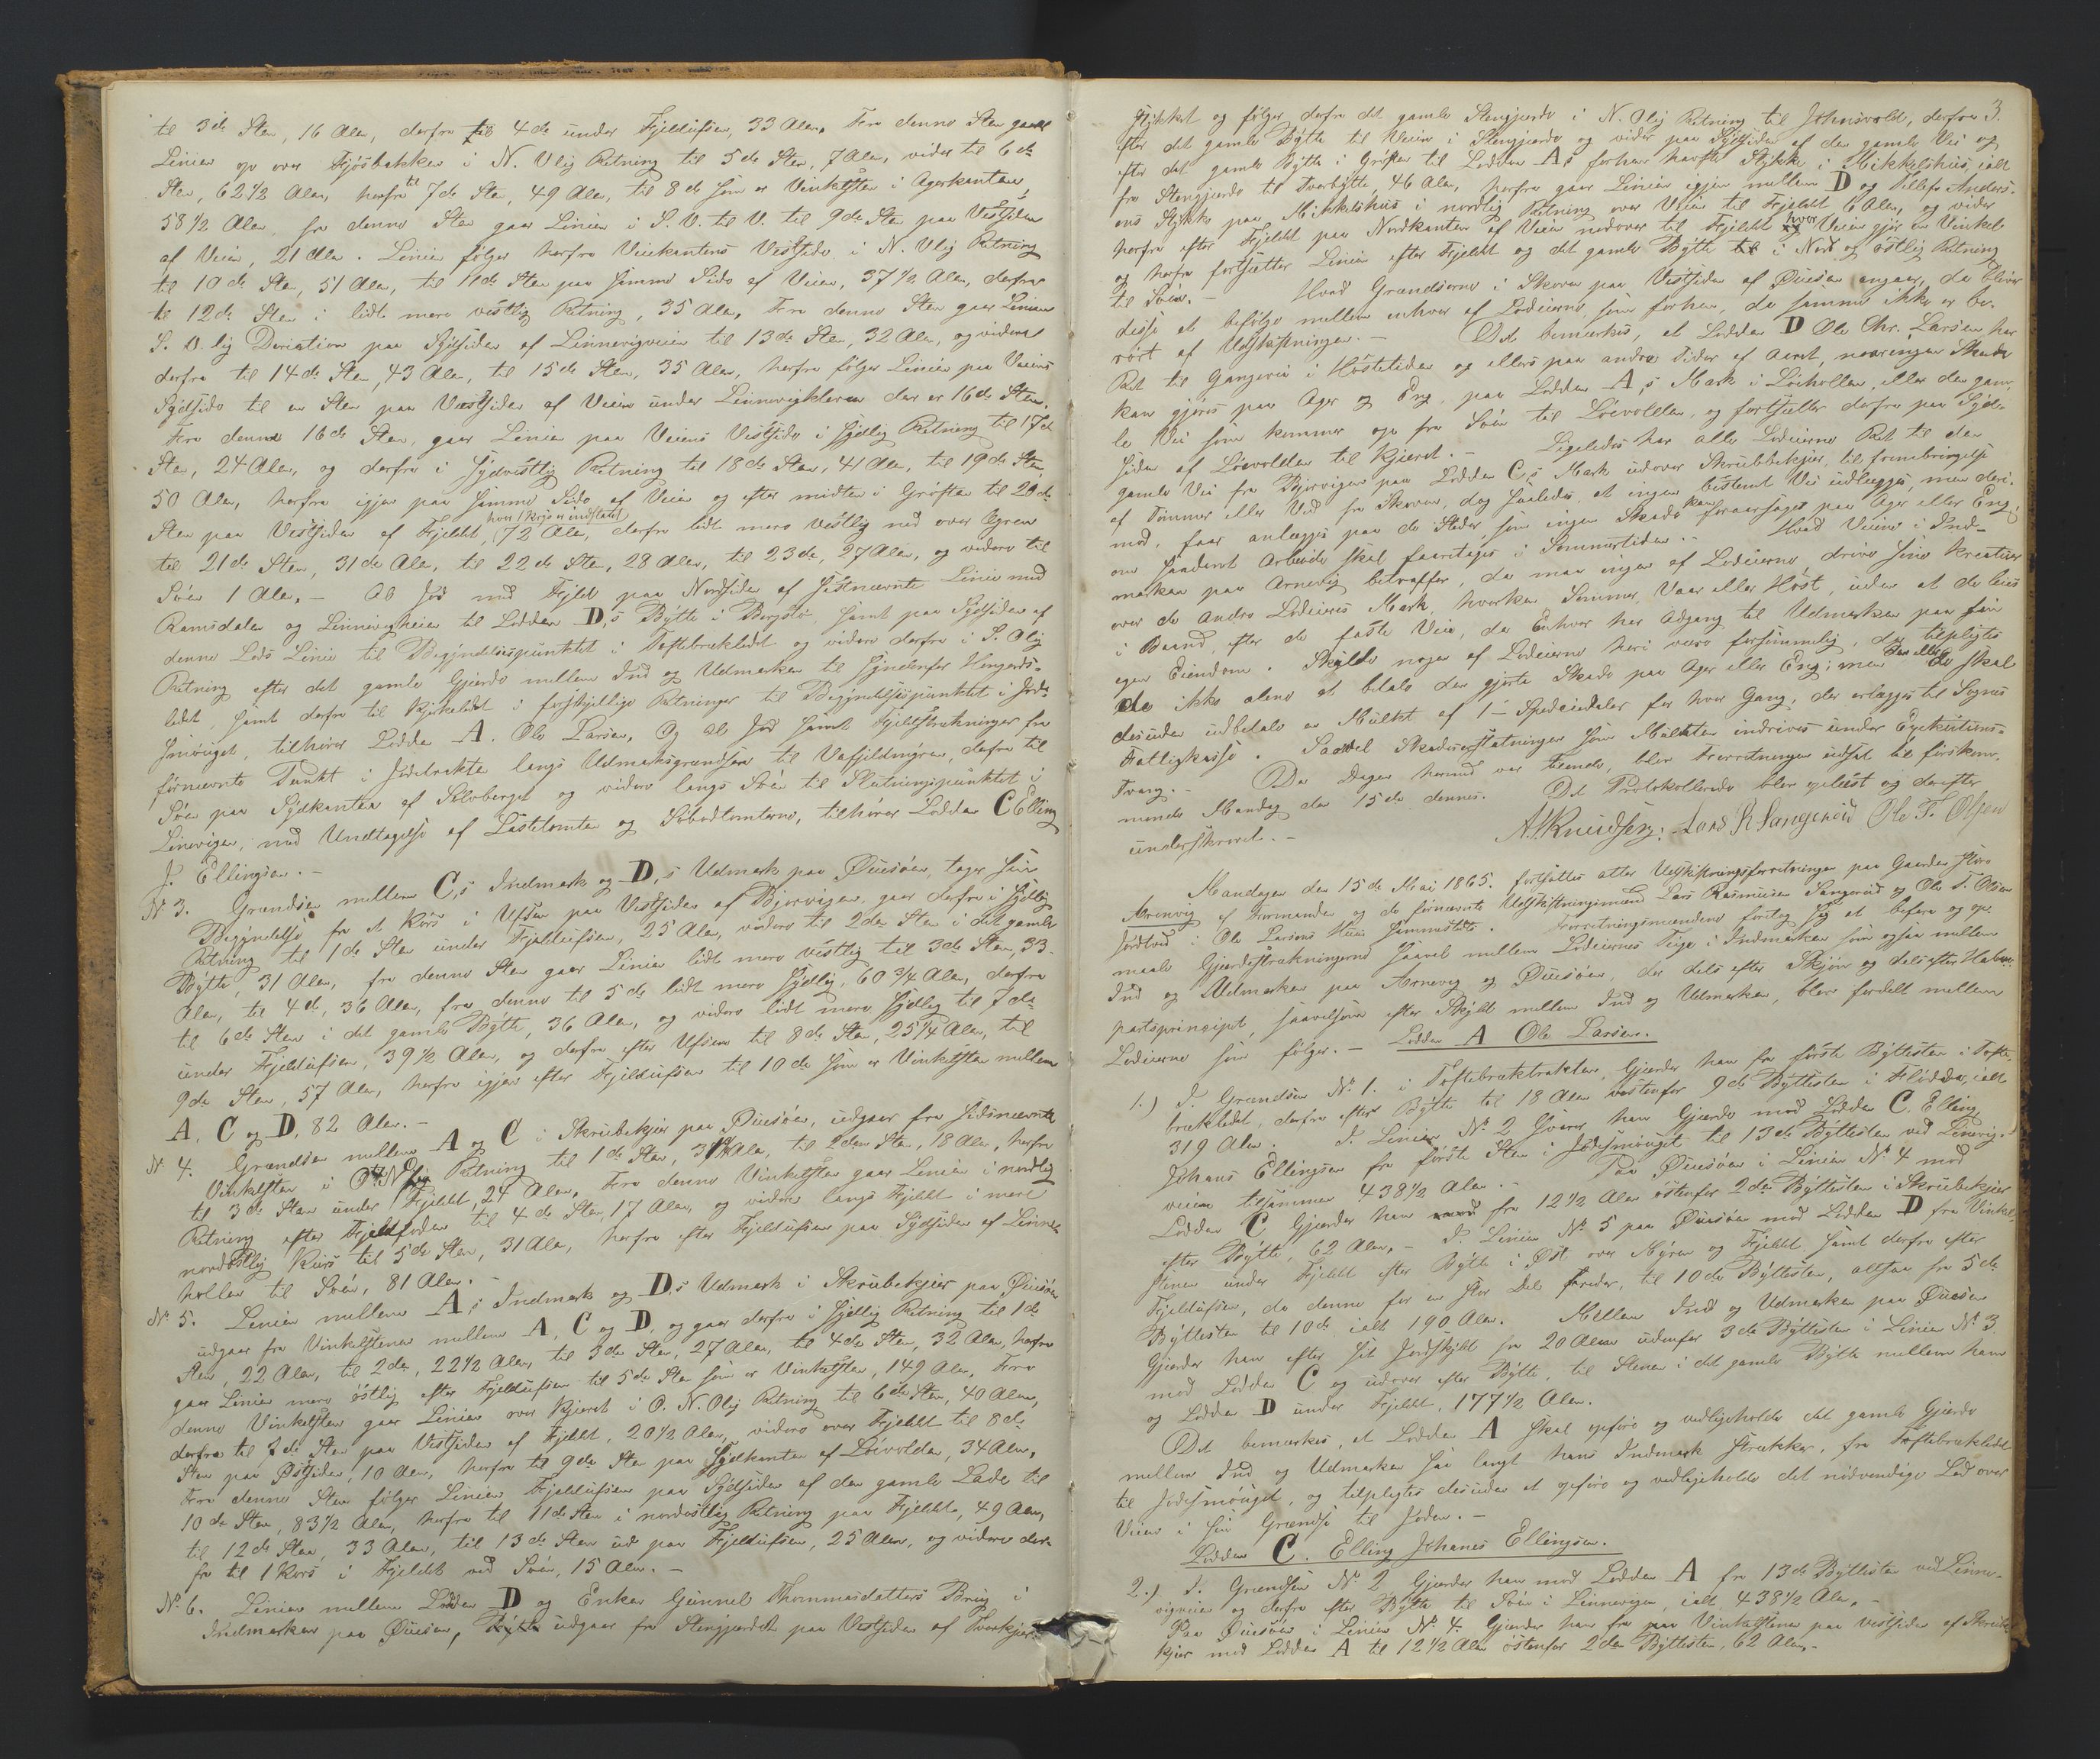 til 3de Sten, 16 Alen, derfra til 4de under Fjeldufsen, 33 Alen. Fra denne Sten gaar
Linien op over Fjøsbakken i N. Vlig Retning til 5de Sten, 7 Alen, vider til 6de
Sten, 62 1/2 Alen, herfra til 7de Sten, 49 Alen, til 8de som er Vinkelsten i Agerkanten,
58 1/2 Alen, fra denne Sten gaar Linien i S. V. til V. til 9de Sten paa Vestsiden
af Veien, 21 Alen. Linien følger herfra Veikantens Vestside i N. Vlig Retning
til 10de Sten, 51 Alen, til 11de Sten paa samme Side af Veien, 37 1/2 Alen, derfra
til 12de Sten i lidt mere vestlig Retning, 35 Alen, Fra denne Sten gaar Linien
S. V. lig Deviation paa Sydsiden af Linnevigveien til 13de Sten, 32 Alen, og videre
derfra til 14de Sten, 43 Alen, til 15de Sten, 35 Alen, herfra følger Linien paa Veiens
Sydside til en Sten paa Vestsiden af Veien under Linnevigkleven der er 16de Sten.
Fra denne 16de Sten, gaar Linien paa Veiens Vestside i sydlig Retning til 17de
Sten, 24 Alen, og derfra i sydvestlig Retning til 18de Sten, 41 Alen, til 19de Sten,
50 Alen, herfra igjen paa samme Side af Veien og efter midten i Grøften til 20de
Sten paa Vestsiden af Fjeldet, hvor 1 Krys er indslaaet, 72 Alen, derfra lidt mere vestlig ned over Ageren
til 21de Sten, 31 de Alen, til 22de Sten, 28 Alen, til 23de, 27 Alen, og videre til
Søen 1 Alen. – Al Jord med Fjeld paa Nordsiden af sidstnævnte Linie med
Ramsdalen og Linnevigheien til Lodden D,s Bytte i Bergslø, samt paa Sydsiden af
denne Lods Linie til Begyndelsespunktet i Toftebrækledet og videre derfra i S. Olig
Retning efter det gamle Gjærde mellem Ind og Udmarken til Søndenfor Hengerds-
ledet, samt derfra til Kirkeledet i forskjellige Retninger til Begyndelsespunktet i Jords-
smøuget, tilhører Lodden A. Ole Larsen, Og al Jord samt Fjeldstrækninger fra
førnævnte Punkt i Jodetrakten langs Udmarksgrændsen til Vafjeldmyren, derfra til
Søen paa Sydkanten af Sølvberget og videre langs Søen til Slutningspunktet i
Linevigen, med Undtagelse af Lastetomten og Søbodtomterne, tilhører Lodden C Elling
J. Ellingsen. –
No 3. Grændsen mellem C,s Indmark og D,s Udmark paa Øuesøen, tager sin
Begyndelse fra et Kors i Ufsen paa Vestsiden af Bjorvigen, gaar derfra i sydlig
Retning til 1de Sten under Fjeldufsen, 25 Alen, videre til 2den Sten i det gamle
Bytte, 31 Alen, fra denne Sten gaar Linien lidt mere vestlig til 3de Sten, 33
Alen, til 4de, 36 Alen, fra denne til 5de lidt mere sydlig, 60 3/4 Alen, derfra
til 6de Sten i det gamle Bytte, 36 Alen, og videre lidt mere sydlig til 7de
under Fjeldufsen, 39 1/2 Alen, og derfra efter Ufsen til 8de Sten, 25 1/4 Alen, til
9de Sten, 57 Alen, herfra igjen efter Fjeldufsen til 10de som er Vinkelsten mellem
A, C og D, 82 Alen. –
No 4. Grændsen mellem A og C i Skrubekjær paa Øuesøen, udgaar fra sidstnævnte
Vinkelsten i Retning til 1de Sten, Alen, til 2den Sten, 18 Alen, herfra
til 3de Sten under Fjeldet, 24 Alen, Fra denne Vinkelsten gaar Linien i nordlig
Retning efter Fjeldfoden til 4de Sten, 17 Alen, og videre langs Fjeldet i mere
nordøstlig Kurs til 5de Sten, 31 Alen, herfra efter Fjeldufsen paa Sydsiden af Linne-
hollen til Søen, 81 Alen. –
No 5. Linien mellem A,s Indmark og D,s Udmark i Skrubekjær paa Øuesøen
udgaar fra Vinkelstenen mellem A, C og D, og gaar derfra i sydlig Retning til 1de
Sten, 22 Alen, til 2de, 22 1/2 Alen, til 3de Sten, 27 Alen, til 4de Sten, 32 Alen, herfra
gaar Linien mere østlig efter Fjeldufsen til 5de Sten som er Vinkelsten, 149 Alen, Fra
denne Vinkelsten gaar Linien over Kjæret i O. N. Olig Retning til 6de Sten, 40 Alen,
derfra til 7de Sten paa Vestsiden af Fjeldet, 20 1/2 Alen, videre over Fjeldet til 8de
Sten paa Østsiden, 10 Alen, herfra til 9de Sten paa Sydkanten af Løevolden, 34 Alen,
Fra denne Sten følger Linien Fjeldufsen paa Sydsiden af den gamle Lade til
10de Sten, 83 1/2 Alen, herfra til 11de Sten i nordøstlig Retning paa Fjeldet, 49 Alen,
til 12de Sten, 33 Alen, til 13de Sten ud paa Fjeldufsen, 25 Alen, og videre der-
fra til 1 Kors i Fjeldet ved Søen, 15 Alen. –
No 6. Linien mellem Lodden D og Enken Gunnel Thommasdatters Brug i
Indmarken paa Øuesøen, Bytte udgaar fra Stengjærdet paa Vestsiden af Tverkjær-
3
stykket og følger derfra det gamle Stengjerde i N. Olig Retning til Johnsvold, derfra
efter det gamle Bytte til Veien i Stengjerde og videre paa Sydsiden af den gamle Vei og
efter det gamle Bytte i Grøften til Lodden A,s forhen havte Stykke i Mikkelshus, ialt
fra Stengjerde til Tverbytte, 46 Alen, herfra gaar Linien igjen mellem D og Tellef Anders-
ens Stykke paa Mikkelshus i nordlig Retning over Veien til Fjeldet 6 Alen, og vider
herfra efter Fjeldet paa Nordkanten af Veien nedover til Fjeldet hvor Veien gjør en Vinkel
og herfra fortsætter Linien efter Fjeldet og det gamle Bytte i Nord og østlig Retning
til Søen. – Hvad Grændserne i Skoven paa Vestsiden af Øuesøen angaar, da bliver
disse at befølge mellem enhver af Lodeierne som forhen, da samme ikke er be-
rørt af Udskiftningen. – Det bemærkes, at Lodden D Ole Chr. Larsen har
Ret til Gangvei i Høstetiden og ellers paa andre Tider af Aaret, naar ingen Skade
kan gjøres paa Ager og Eng, paa Lodden A,s Mark i Løehollen, eller den gam-
le Vei som kommer op fra Søen til Løevolden, og fortsætter derfra paa Syd-
siden af Løevolden til Kjæret. – Ligeledes har alle Lodeierne Ret til den
gamle Vei fra Bjorvigen paa Lodden C,s Mark udover Skrubbekjær, til frembringelse
af Tømmer eller Ved fra Skoven, dog saaledes, at ingen bestemt Vei udlægges, men der-
imod, faar anlægges paa de Steder som ingen Skade kan foraarsages paa Ager eller Eng,
om saadant Arbeide skal foretages i Sommertiden. – Hvad Veiene i Ind-
marken paa Arnevig betræffer, da maa ingen af Lodeierne, drive sine Kreaturer
over de andre Lodeieres Mark, hverken Sommer, Vaar eller Høst, uden at de leies
i Baand, efter de faste Veie, da Enhver har Adgang til Udmarken paa sin
egen Eiendom. Skulde nogen af Lodeierne heri være forsømmelig, da tilpligtes
de ikke alene at betale den gjorte Skade paa Ager eller Eng; men Den eller de skal
desuden udbetale en Mulkt af 1 – Speciedaler for hver Gang, der erlægges til Sognes
Fattigkasse. Saavel Skadeserstatningen som Mulkten inddrives under Exekutions-
Tvang. – Da Dagen hermed var tilende, blev Forretningen udsat til førstkom-
mende Mandag den 15de dennes. Det Protokollerede blev oplæst og derefter
underskrevet. –
A. Knudsen. Lars R Sangereid Ole T. Olsen
Mandagen den 15de Mai 1865. fortsattes atter Udskiftningsforretningen paa Gaarden Store
Arnevig af Formanden og de førnævnte Udskiftningsmænd Lars Rasmusen Sangereid og Ole T. Olsen
Jordtved i Ole Larsens Huus sammesteds. Forretningsmændene foretog sig at befare og op-
maale Gjerdestrækningerne saavel mellem Lodeiernes Teige i Indmarken som ogsaa mellem
Ind og Udmarken paa Arnevig og Øuesøen, der dels efter Skjøn og dels efter Halv-
partsprincipet, saavelsom efter Skyld mellem Ind og Udmarken, blev fordelt mellem
Lodeierne som følger. – Lodden A Ole Larsen.
1.) I. Grændsen No 1. i Toftebræktrakten, Gjærder han fra første Byttesten i Tofte-
brækledet, derfra efter Bytte til 18 Alen vestenfor 9de Byttesten i Flødden, ialt
319 Alen. I. Linien No 2 svarer han Gjerde mod Lodden C. Elling
Johans Ellingsen fra første Sten i Jordsmøuget til 13de Byttesten ved Linevig-
veien tilsammen 438 1/2 Alen. – Paa Øuesøen i Linien No 4 mod
Lodden C, Gjærder han fra 12 1/2 Alen østenfor 2den Byttesten i Skrubekjær
efter Bytte, 62 Alen. – I. Linien No 5 paa Øuesøen mod Lodden D fra Vinkel-
stenen under Fjeldet efter Bytte i Øst over Myren og Fjeldet, samt derfra efter
Fjeldufsen, da denne for en stor Del freder, til 10de Byttesten, altsaa fra 5de
Byttesten til 10de ialt 190 Alen. Mellem Ind og Udmarken paa Øuesøen
Gjærder han efter sit Jordskyld fra 20 Alen udenfor 3de Byttesten i Linien No 3
mod Lodden C og udover efter Bytte, til Stenen i det gamle Bytte mellem ham
og Lodden D under Fjeldet, 177 1/2 Alen.
Det bemærkes, at Lodden A skal opføre og vedligeholde det gamle Gjerde
mellem Ind og Udmarken saa langt hans Indmark strækker, fra Toftebrækledet
til Jordsmøuget, og tilpligtes desuden at opføre og vedligeholde det nødvendige Led over
Veien i sin Grændse til Joden. –
Lodden C. Elling Johanes Ellingsen.
2.) I. Grændsen No 2 Gjærder han mod Lodden A fra 13de Byttesten ved Linne-
vigveien og derfra efter Bytte til Søen i Linnevigen, ialt, 438 1/2 Alen. –
Paa Øuesøen i Linien No 4. Gjærder han fra Vinkelstenen paa vestsiden af Skrube-
kjær mod Lodden A til 12 1/2 Alen østenfor 2den Byttesten, 62 Alen. –